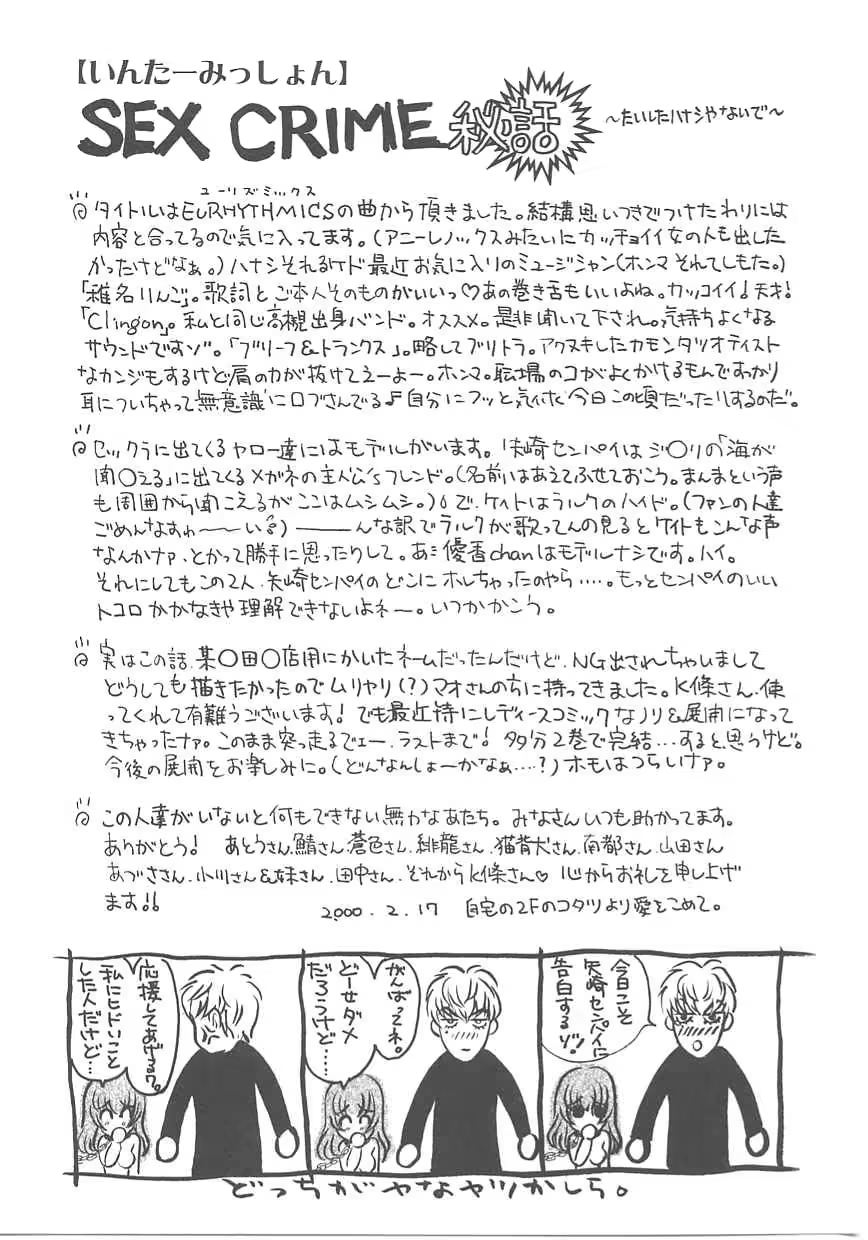 【いんたーみっしょん】
SEX CRIME 秘話 ～たいしたハナシやないで～
ユーリズミックス
タイトルはEURHYTHMICSの曲から頂きました。結構思いつきでつけたわりには
内容と合ってるので気に入ってます。(アニーレノックスみたいにカッチョイイ女の人も出した
かったけどなぁ。)ハナシそれるケド最近お気に入りのミュージシャン(ホンマそれてしもた。)
「椎名りんご」。歌詞とご本人そのものがいいっ♡あの巻き舌もいいよね。カッコイイ!天才!
「Clingon」。私と同じ高槻出身バンド。オススメ。是非聞いて下され。気持ちよくなる
サウンドですゾ。「ブリーフ&トランクス」。略してブリトラ。アクヌキしたカモンタツオテイスト
なカンジもするけど肩の力が抜けてえーよー。ホンマ。職場のコがよくかけるもんですっかり
耳についちゃって無意識に口ずさんでる♪自分にフッと気付く今日この頃だったりするのだ。
セックラに出てくるヤロー達にはモデルがいます。矢崎センパイはジ〇リの「海が
聞〇える」に出てくるメガネの主人公'sフレンド。(名前はあえてふせておこう。まんまという声
も周囲から聞こえるがここはムシムシ。)で、ケイトはラルクのハイド。(ファンの人達
ごめんなすゎ～～い)――んな訳でラルクが歌ってんの見るとケイトもこんな声
なんかナァ、とかって勝手に思ったりして。あ、優香chanはモデルナシです。ハイ。
それにしてもこの2人、矢崎センパイのどこにホレちゃったのやら……。もっとセンパイのいい
トコロかかなきゃ理解できないよネー。いつかかこう。
実はこの話、某〇田〇店用にかいたネームだったんだけど、NG出されちゃいまして
どうしても描きたかったのでムリヤリ(?)マオさんのちに持ってきました。K條さん、使
ってくれて有難うございます!でも最近特にレディースコミックなノリ&展開になって
きちゃったナァ。このまま突っ走るでェー、ラストまで!多分2巻で完結…すると思うけど。
今後の展開をお楽しみに。(どんなんしょーかなぁ…?)ホモはつらいけァ。
この人達がいないと何もできない無力なあたち。みなさんいつも助かってます。
ありがとう! あとうさん、鯖さん、蒼色さん、緋龍さん、猫背犬さん、南都さん、山田さん
あづささん、小川さん&妹さん、田中さん、それからK條さん♡ 心からお礼を申し上げ
ます!!
2000.2.17 自宅の2Fのコタツより愛をこめて。
今日こそ
矢崎センパイに
告白するゾ!
がんばってネ。
どーせダメ
だろうけど…
応援してあげるワ。
私にヒドいこと
した人だけど…
どっちがヤなヤツかしら。